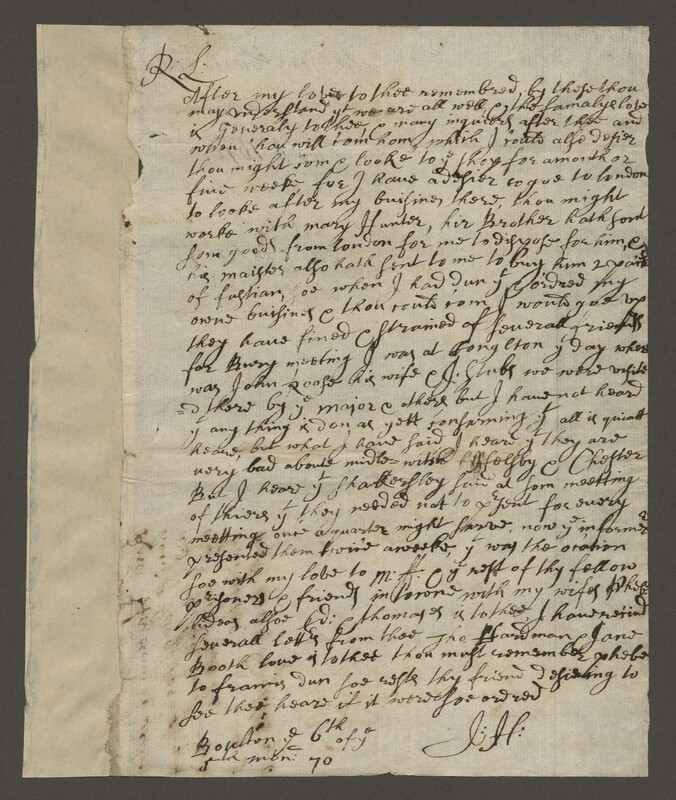 R: L:
After my love to thee remembred, by these thou
may understand yt we are all well & the familys love
is Generaly to thee & many inquiers after thee and
when thou will com hom, which I could also desier
thou might com & looke to ye shop for a month or
five weeke for I have a desier to goe to london
to looke after my buisines there, thou might
worke with mary Hunter, hir Brother hath sent
som goods from london for me to dispose for him, &
his maister also hath sent to me to buy him 2 pack
of fustian, soe when I had dun yt & ordred my
owne buisines & thou could com I would goe up
they have fined & strained of severall friends
for Bury meeting I was at Conglton yt day when
was John his wife & J: Stubs we were visite
=d there by ye major & others but I have not heard
yt any thing is don as yett Confirming yt all is quiatt
heare, but what I have said I hear yt they are
very bad about midle-wich & Chester
But I hear yt Shakersley said at som meetting
of thiers yt they needed not to prsent for every
meetting once a quarter might sarve, now ye informer
presented them twice a weeke, yt was the oration
soe with my love to m: ff: & ye rest of thy fellow
prisoners & friends in towne with my wifes
alsoe Ed: & thomases is to thee, I have recivd
severall lettrs from thee Tho Hardman & Jane
Booth love is to thee thou must remember phebe
to francis dun soe rests thy friend desiering to
see thee heare if it were soe ordred
J: H:
Boulton ye 6th of ye
mon: 70